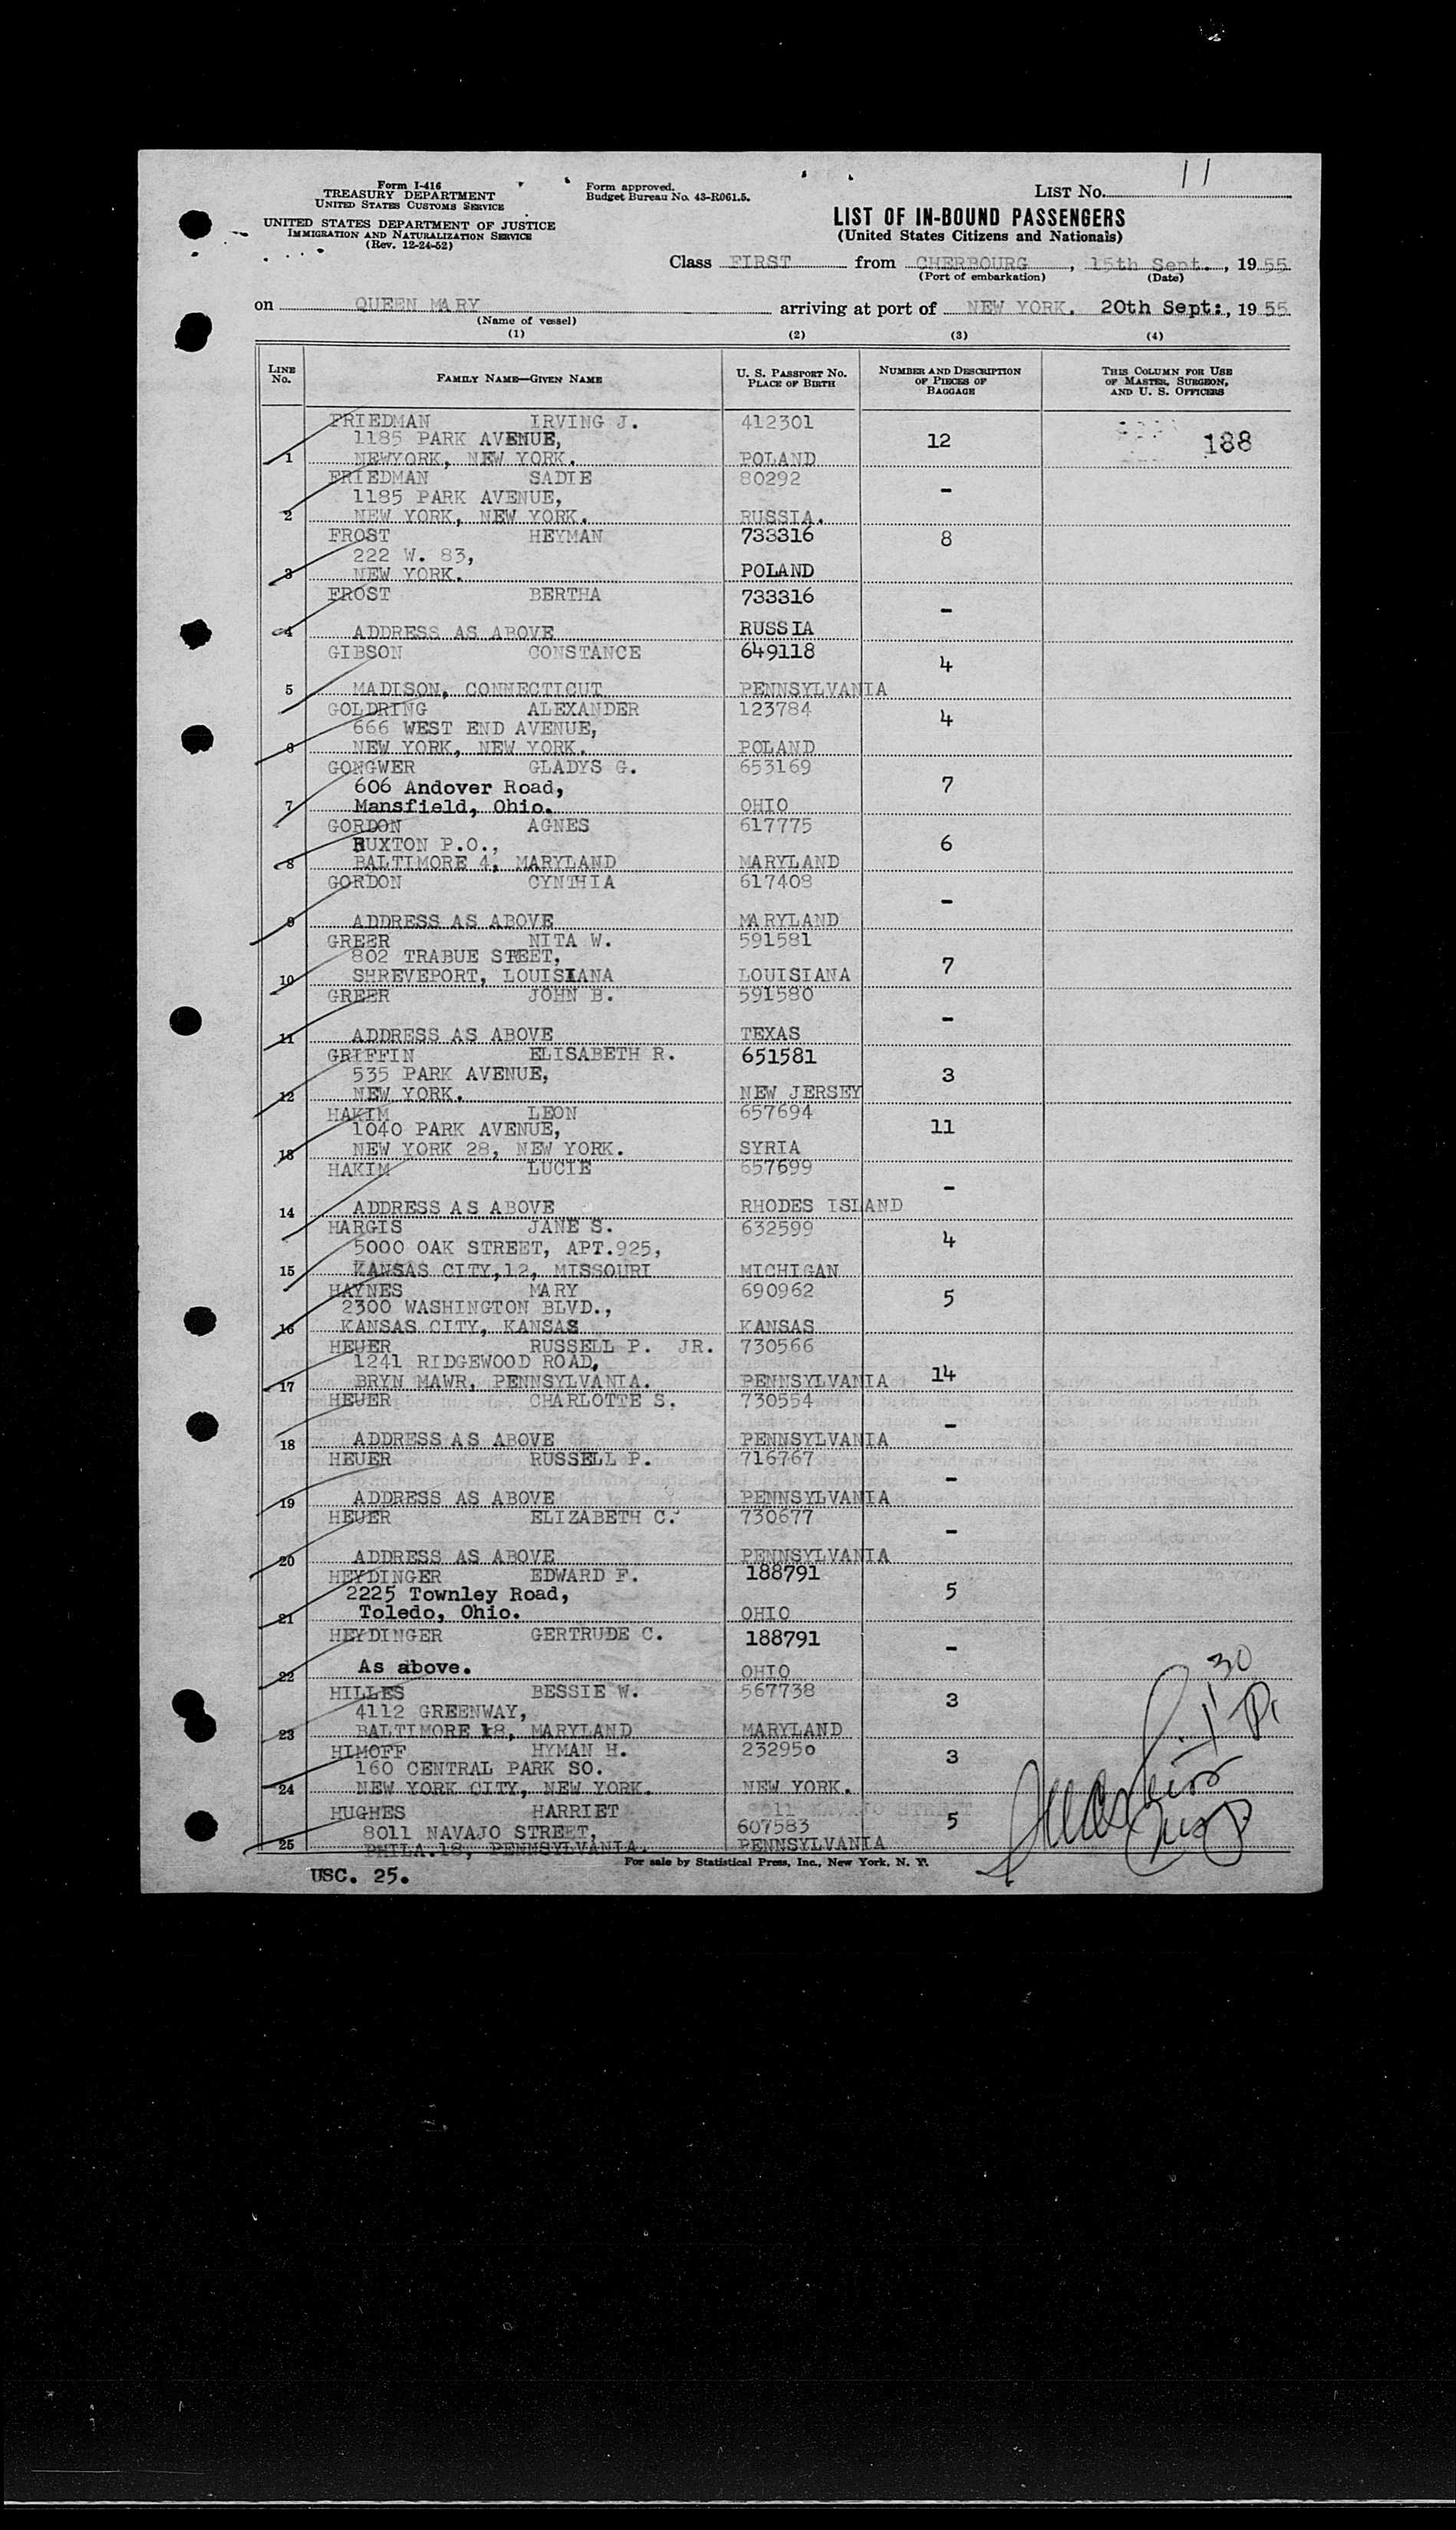 Form I-416
TREASURY DEPARTMENT
UNITED STATES CUSTOMS SERVICE
UNITED STATES DEPARTMENT OF JUSTICE
IMMIGRATION AND NATURALIZATION SERVICE
(Rev. 12-24-52)
Form approved.
Budget Bureau No. 43-R061.5.
LIST NO. 11
LIST OF IN-BOUND PASSENGERS
(United States Citizens and Nationals)
Class FIRST from CHERBOURG, 15th Sept., 1955
(Port of embarkation) (Date)
on QUEEN MARY arriving at port of NEW YORK. 20th Sept:, 1955
(Name of vessel)
(1) (2) (3) (4)
LINE NO. FAMILY NAME—GIVEN NAME U. S. PASSPORT NO. PLACE OF BIRTH NUMBER AND DESCRIPTION OF PIECES OF BAGGAGE THIS COLUMN FOR USE OF MASTER, SURGEON, AND U. S. OFFICERS
FRIEDMAN IRVING J. 412301
1185 PARK AVENUE, 12 188
1 NEWYORK, NEW YORK. POLAND
FRIEDMAN SADIE 80292
1185 PARK AVENUE, -
2 NEW YORK, NEW YORK. RUSSIA.
FROST HEYMAN 733316 8
222 W. 83,
3 NEW YORK. POLAND
FROST BERTHA 733316 -
4 ADDRESS AS ABOVE RUSSIA
GIBSON CONSTANCE 649118 4
5 MADISON, CONNECTICUT PENNSYLVANIA
GOLDRING ALEXANDER 123784 4
666 WEST END AVENUE,
6 NEW YORK, NEW YORK. POLAND
GONGWER GLADYS G. 653169
606 Andover Road, 7
7 Mansfield, Ohio. OHIO
GORDON AGNES 617775
RUXTON P.O., 6
8 BALTIMORE 4, MARYLAND MARYLAND
GORDON CYNTHIA 617408 -
9 ADDRESS AS ABOVE MARYLAND
GREER NITA W. 591581
802 TRABUE STEET, 7
10 SHREVEPORT, LOUISIANA LOUISIANA
GREER JOHN B. 591580 -
11 ADDRESS AS ABOVE TEXAS
GRIFFIN ELISABETH R. 651581
535 PARK AVENUE, 3
12 NEW YORK. NEW JERSEY
HAKIM LEON 657694
1040 PARK AVENUE, 11
13 NEW YORK 28, NEW YORK. SYRIA
HAKIM LUCIE 657699 -
14 ADDRESS AS ABOVE RHODES ISLAND
HARGIS JANE S. 632599
5000 OAK STREET, APT.925, 4
15 KANSAS CITY,12, MISSOURI MICHIGAN
HAYNES MARY 690962 5
2300 WASHINGTON BLVD.,
16 KANSAS CITY, KANSAS KANSAS
HEUER RUSSELL P. JR. 730566
1241 RIDGEWOOD ROAD,
17 BRYN MAWR, PENNSYLVANIA. PENNSYLVANIA 14
HEUER CHARLOTTE S. 730554 -
18 ADDRESS AS ABOVE PENNSYLVANIA
HEUER RUSSELL P. 716767 -
19 ADDRESS AS ABOVE PENNSYLVANIA
HEUER ELIZABETH C. 730677 -
20 ADDRESS AS ABOVE PENNSYLVANIA
HEYDINGER EDWARD F. 188791
2225 Townley Road, 5
21 Toledo, Ohio. OHIO
HEYDINGER GERTRUDE C. 188791 -
22 As above. OHIO
HILLES BESSIE W. 567738 3
4112 GREENWAY,
23 BALTIMORE 18, MARYLAND MARYLAND
HIMOFF HYMAN H. 232950 3
160 CENTRAL PARK SO.
24 NEW YORK CITY, NEW YORK. NEW YORK.
HUGHES HARRIET 5
8011 NAVAJO STREET, 607583
25 PHILA.18, PENNSYLVANIA. PENNSYLVANIA
For sale by Statistical Press, Inc., New York, N. Y.
USC. 25.